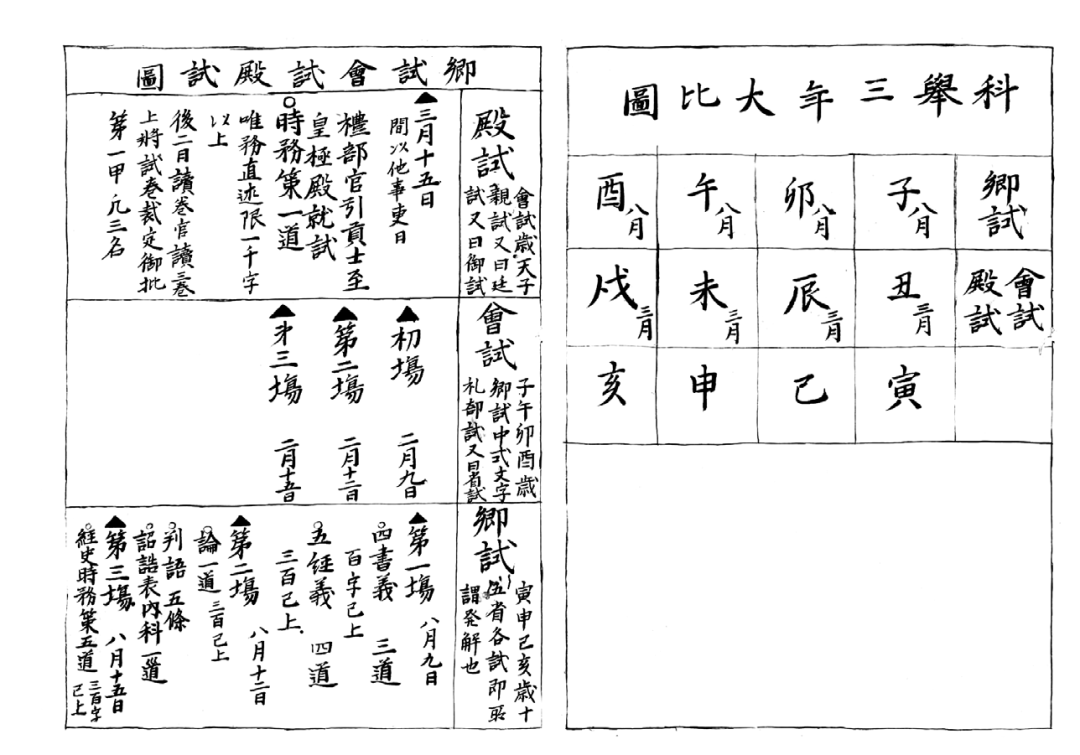 科舉三年大比圖
鄉試
子八月
卯八月
午八月
酉八月
會試
殿試
丑三月
辰三月
未三月
戌三月
寅
己
申
亥
鄉試會試殿試圖
殿試
會試歲天子
親試又曰廷
試又曰御試
▲三月十五日
間以他事更日
禮部官引貢士至
皇極殿就試
○時務策一道
唯務直述限一千字
以上
後二日讀卷官讀三卷
上將試卷裁定御批
第一甲凡三名
會試
子午卯酉歲
鄉試中式文字
礼部試又曰省試
▲初場 二月九日
▲第二場 二月十二日
▲才三場 二月十五日
鄉試
寅申己亥歲十
伍省各試即所
謂発解也
▲第一場 八月九日
○四書義 三道
百字已上
○五経義 四道
三百已上
▲第二場 八月十二日
○論一道 三百已上
○判語 五條
○詔誥表內科一道
▲第三場 八月十五日
○経史時務策五道 三百字已上